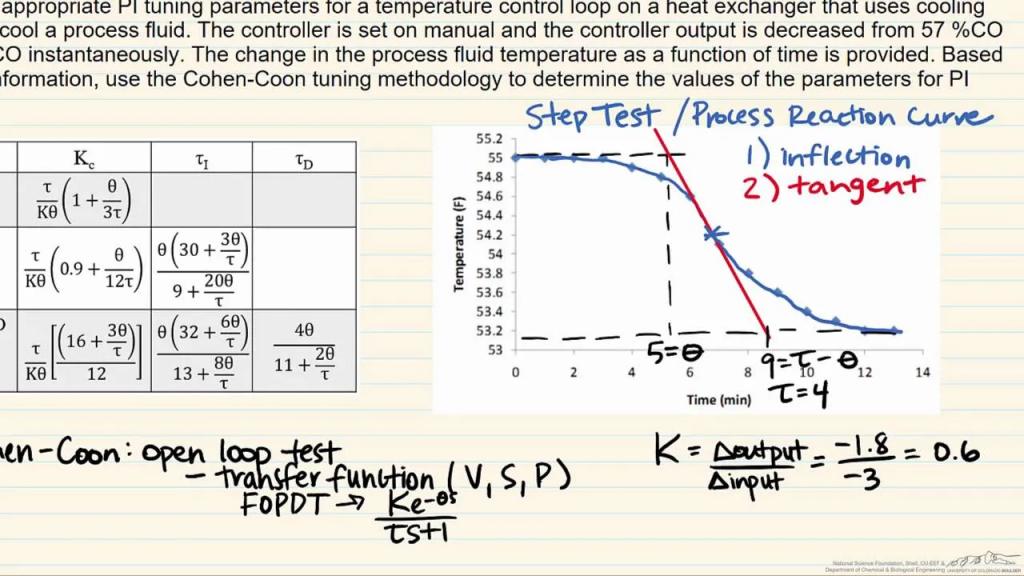 appropriate PI tuning parameters for a temperature control loop on a heat exchanger that uses cooling
cool a process fluid. The controller is set on manual and the controller output is decreased from 57 %CO
CO instantaneously. The change in the process fluid temperature as a function of time is provided. Based
formation, use the Cohen-Coon tuning methodology to determine the values of the parameters for PI
Step Test / Process Reaction Curve
1) inflection
2) tangent
Kc τI τD
τ/Kθ (1 + θ/3τ)
τ/Kθ (0.9 + θ/12τ) θ(30 + 3θ/τ) / 9 + 20θ/τ
τ/Kθ [(16 + 3θ/τ)/12] θ(32 + 6θ/τ) / 13 + 8θ/τ 4θ / 11 + 2θ/τ
Temperature (F)
55.2
55
54.8
54.6
54.4
54.2
54
53.8
53.6
53.4
53.2
53
0 2 4 6 8 10 12 14
Time (min)
5=θ
9=τ-θ
τ=4
en-Coon: open loop test
- transfer function (V, S, P)
FOPDT → Ke-θs / τs+1
K = Δoutput / Δinput = -1.8 / -3 = 0.6
National Science Foundation, Shell, CU-EEF &
Department of Chemical & Biological Engineering UNIVERSITY OF COLORADO BOULDER